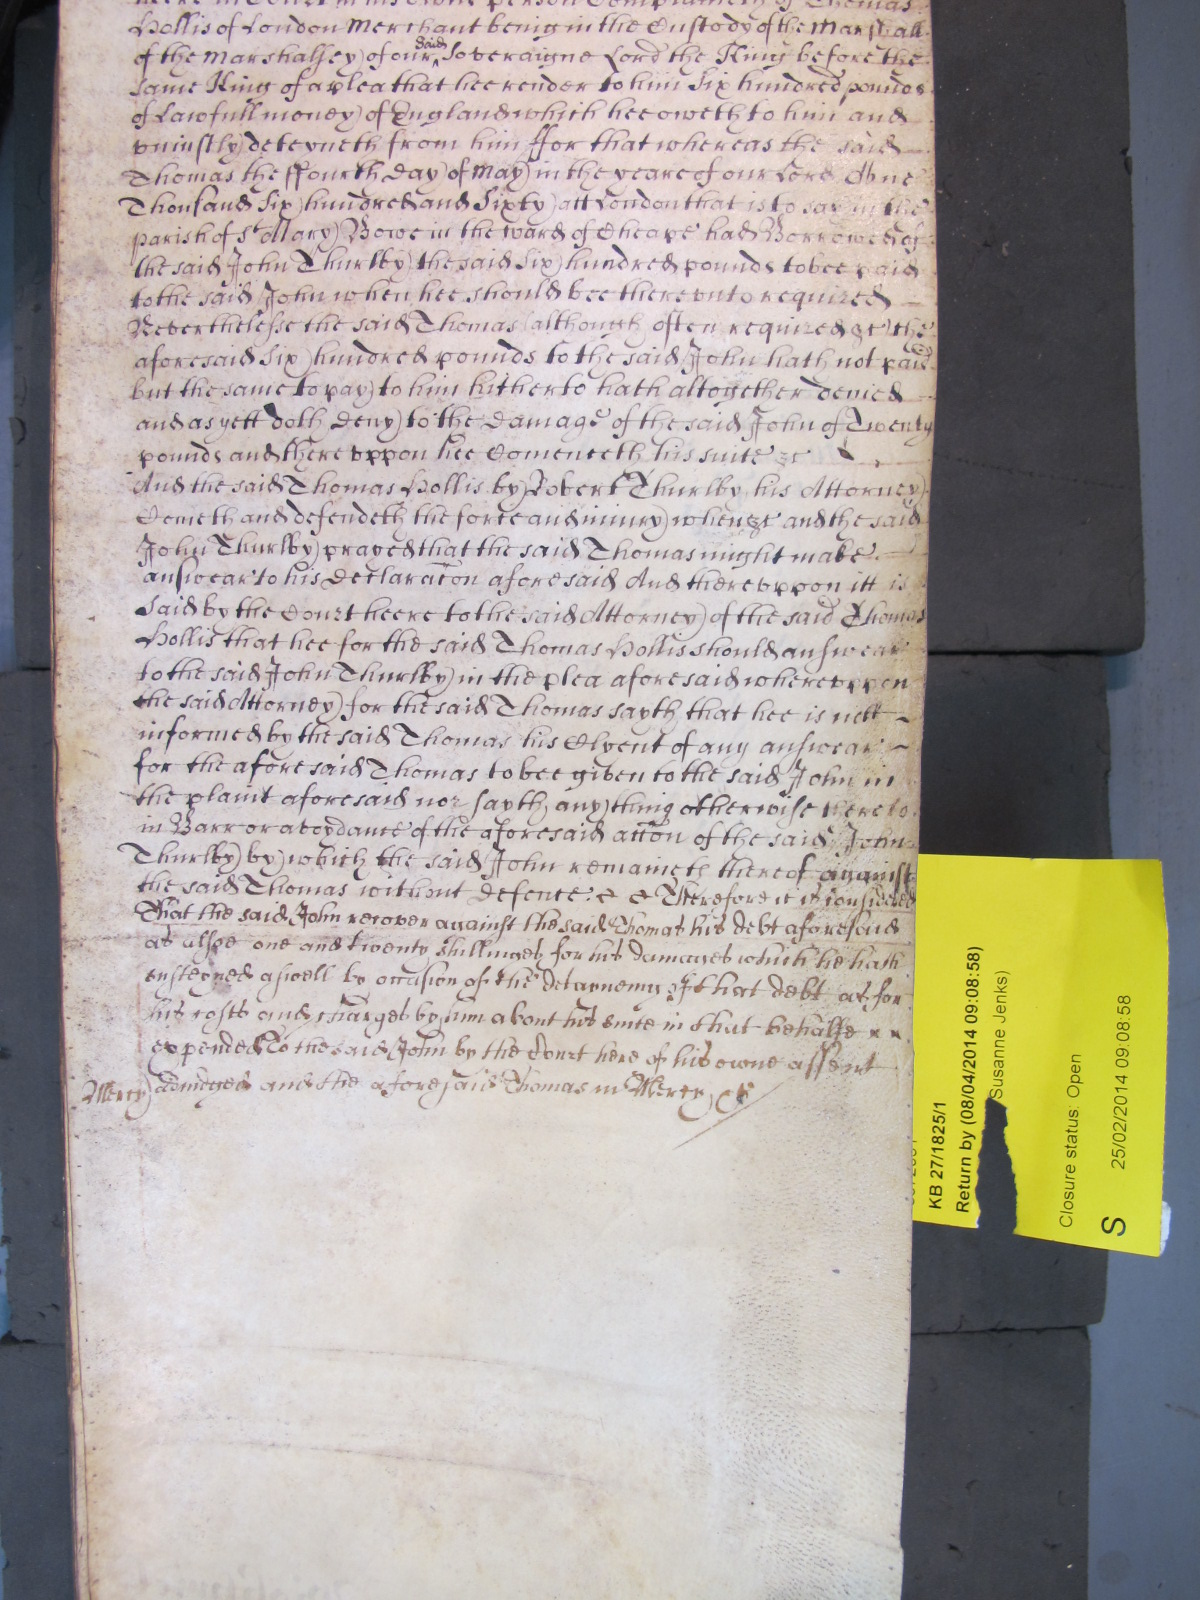 heere in Court in his owne person Complaineth of Thomas
Hollis of London Merchant being in the Custody of the Marshall
of the Marshalsey of our said Soveraigne Lord the King before the
same King of a plea that hee render to him Six hundred pounds
of Lawfull money of England which hee oweth to him and
uniustly deteyneth from him ffor that whereas the said
Thomas the ffourth day of May in the yeare of our Lord One
Thousand Six hundred and Sixty att London that is to say in the
parish of St Mary Bowe in the ward of Cheape had Borrowed of
the said John Thurlby the said Six hundred pounds to bee paid
to the said John when hee should bee thereunto required
Neverthelesse the said Thomas (although often required &c) the
aforesaid Six hundred pounds to the said John hath not paid
but the same to pay to him hitherto hath altogether denied
and as yett doth deny to the damage of the said John of Twenty
pounds and thereuppon hee Comenceth his suite &c
And the said Thomas Hollis by Robert Thurlby his Attorney
Cometh and defendeth the force and iniury when &c and the said
John Thurlby prayed that the said Thomas might make
answear to his Declaracon aforesaid And thereuppon itt is
said by the Court heere to the said Attorney of the said Thomas
Hollis that hee for the said Thomas Hollis should answear
to the said John Thurlby in the plea aforesaid whereuppon
the said Attorney for the said Thomas sayth that hee is nott
informed by the said Thomas his Clyent of any answear
for the aforesaid Thomas to bee given to the said John in
the plaint aforesaid nor sayth any thing otherwise thereto
in Barr or avoydance of the aforesaid accon of the said John
Thurlby by which the said John remaineth thereof against
the said Thomas without defence: & & Therefore it is considered
That the said John recover against the said Thomas his debt aforesaid
as alsoe one and twenty shillinges for his damages which he hath
susteyned aswell by occasion of the detayneing of that debt as for
his costs and charges by him about his suite in that behalfe
expended to the said John by the Court here of his owne assent
Mercy adiudged and the aforesaid Thomas in Mercy &c
KB 27/1825/1
Return by (08/04/2014 09:08:58)
Susanne Jenks)
Closure status: Open
S
25/02/2014 09:08:58